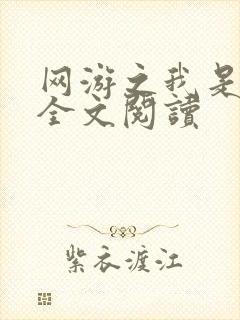 网游之我是
全文阅讀
紫衣渡江